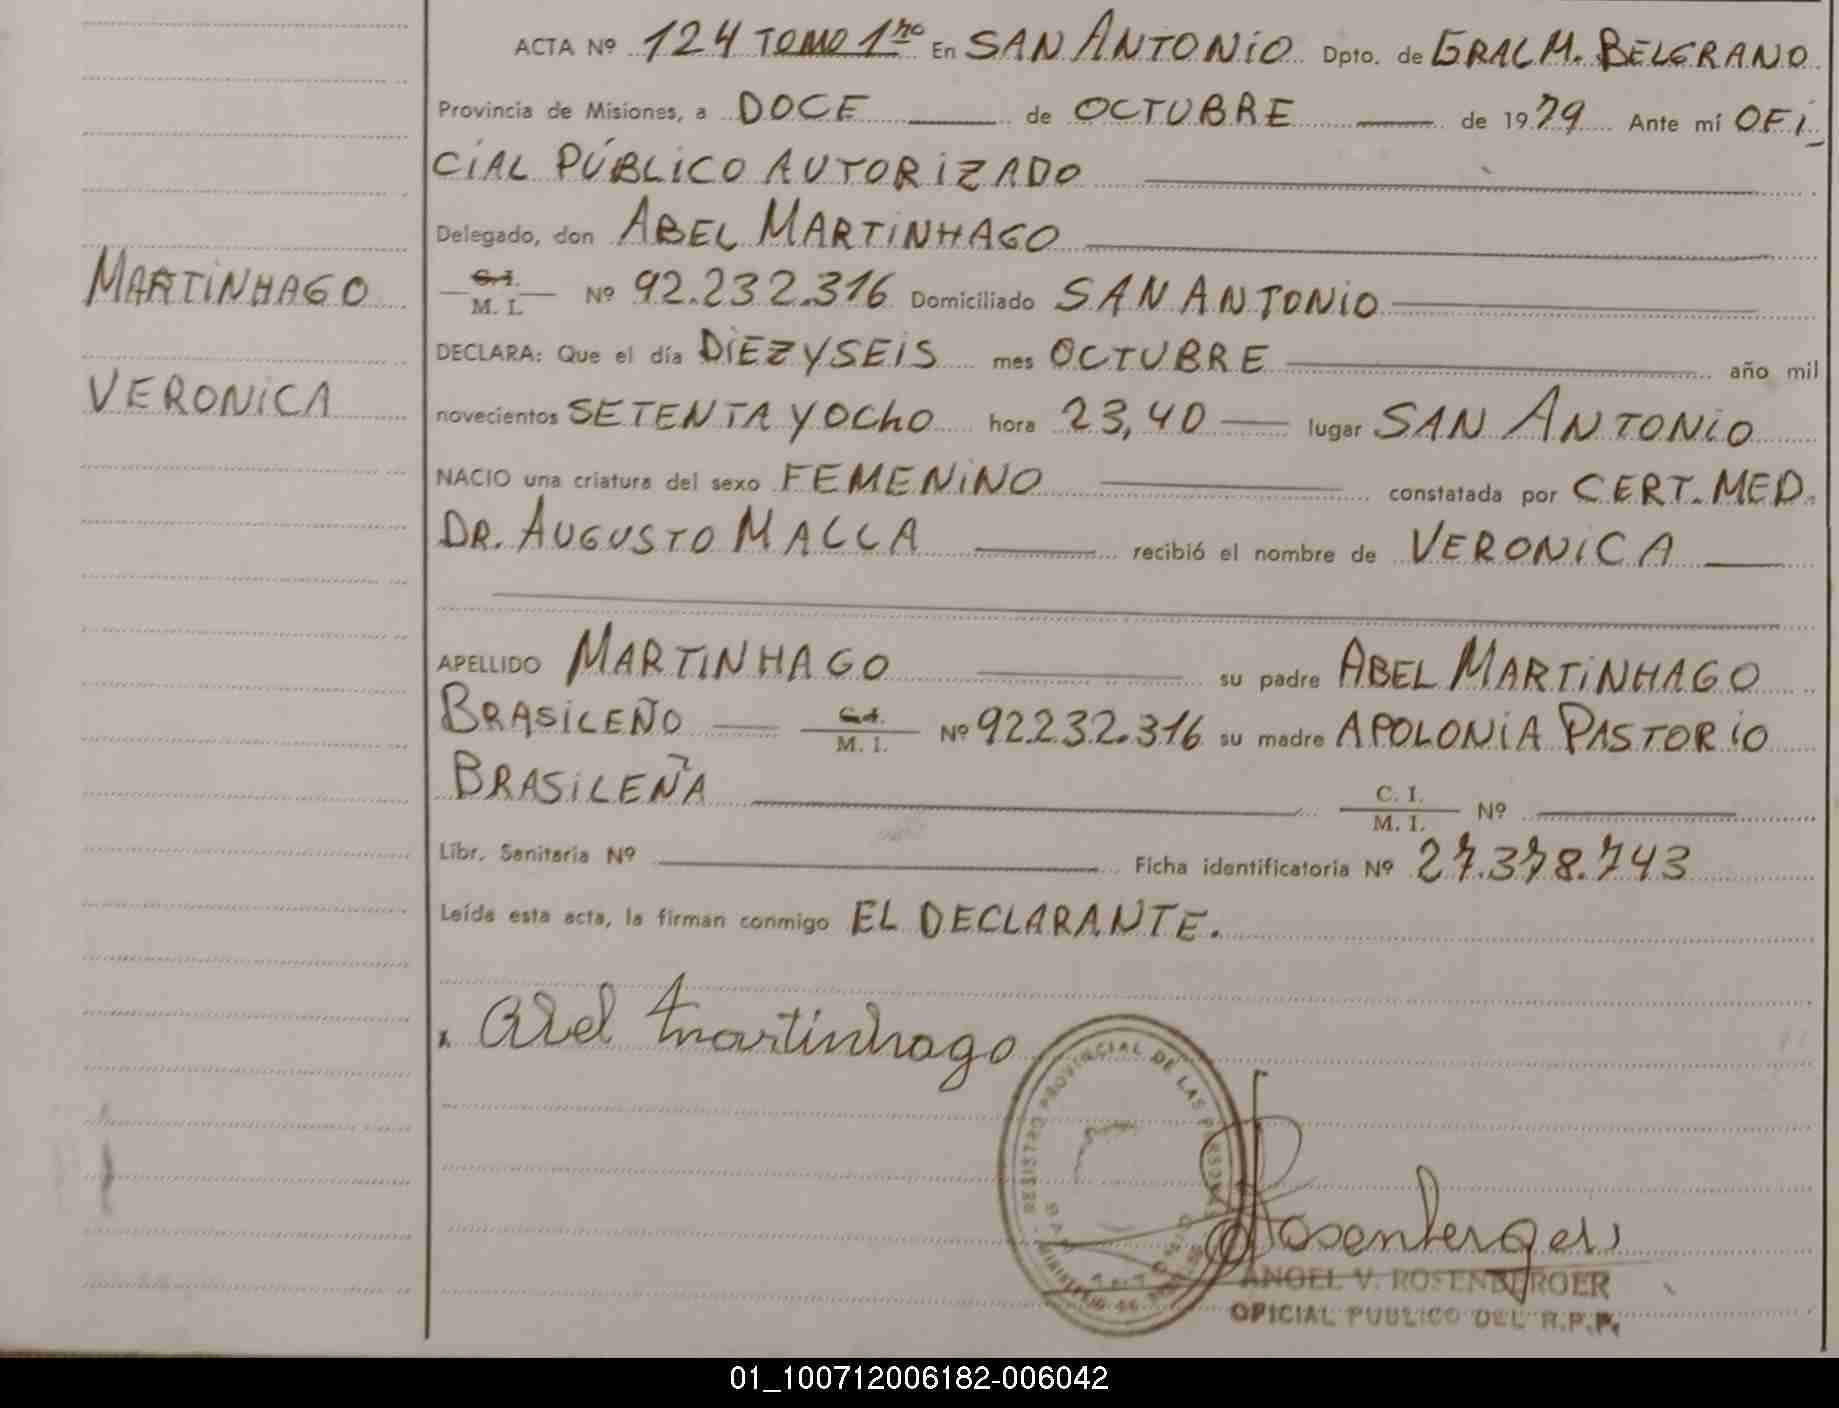 ACTA Nº 124 TOMO 1ro En SAN ANTONIO Dpto. de GRAL M. BELGRANO
Provincia de Misiones, a DOCE de OCTUBRE de 1979 Ante mí OFI
CIAL PÚBLICO AUTORIZADO
Delegado, don ABEL MARTINHAGO
MARTINHAGO
C.I.
M. I. Nº 92.232.316 Domiciliado SAN ANTONIO
DECLARA: Que el día DIEZ Y SEIS mes OCTUBRE año mil
VERONICA
novecientos SETENTA Y OCHO hora 23,40 lugar SAN ANTONIO
NACIO una criatura del sexo FEMENINO constatada por CERT. MED.
DR. AUGUSTO MALLA recibió el nombre de VERONICA
APELLIDO MARTINHAGO su padre ABEL MARTINHAGO
BRASILEÑO C.I. M. I. Nº 92.232.316 su madre APOLONIA PASTORIO
BRASILEÑA C. I. M. I. Nº
Libr. Sanitaria Nº Ficha identificatoria Nº 27.378.743
Leída esta acta, la firman conmigo EL DECLARANTE.
x Abel Martinhago
REGISTRO PROVINCIAL DE LAS PERSONAS
MINISTERIO DE
Rosenberger
ANGEL V. ROSENBERGER
OFICIAL PUBLICO DEL R.P.P.
01_100712006182-006042